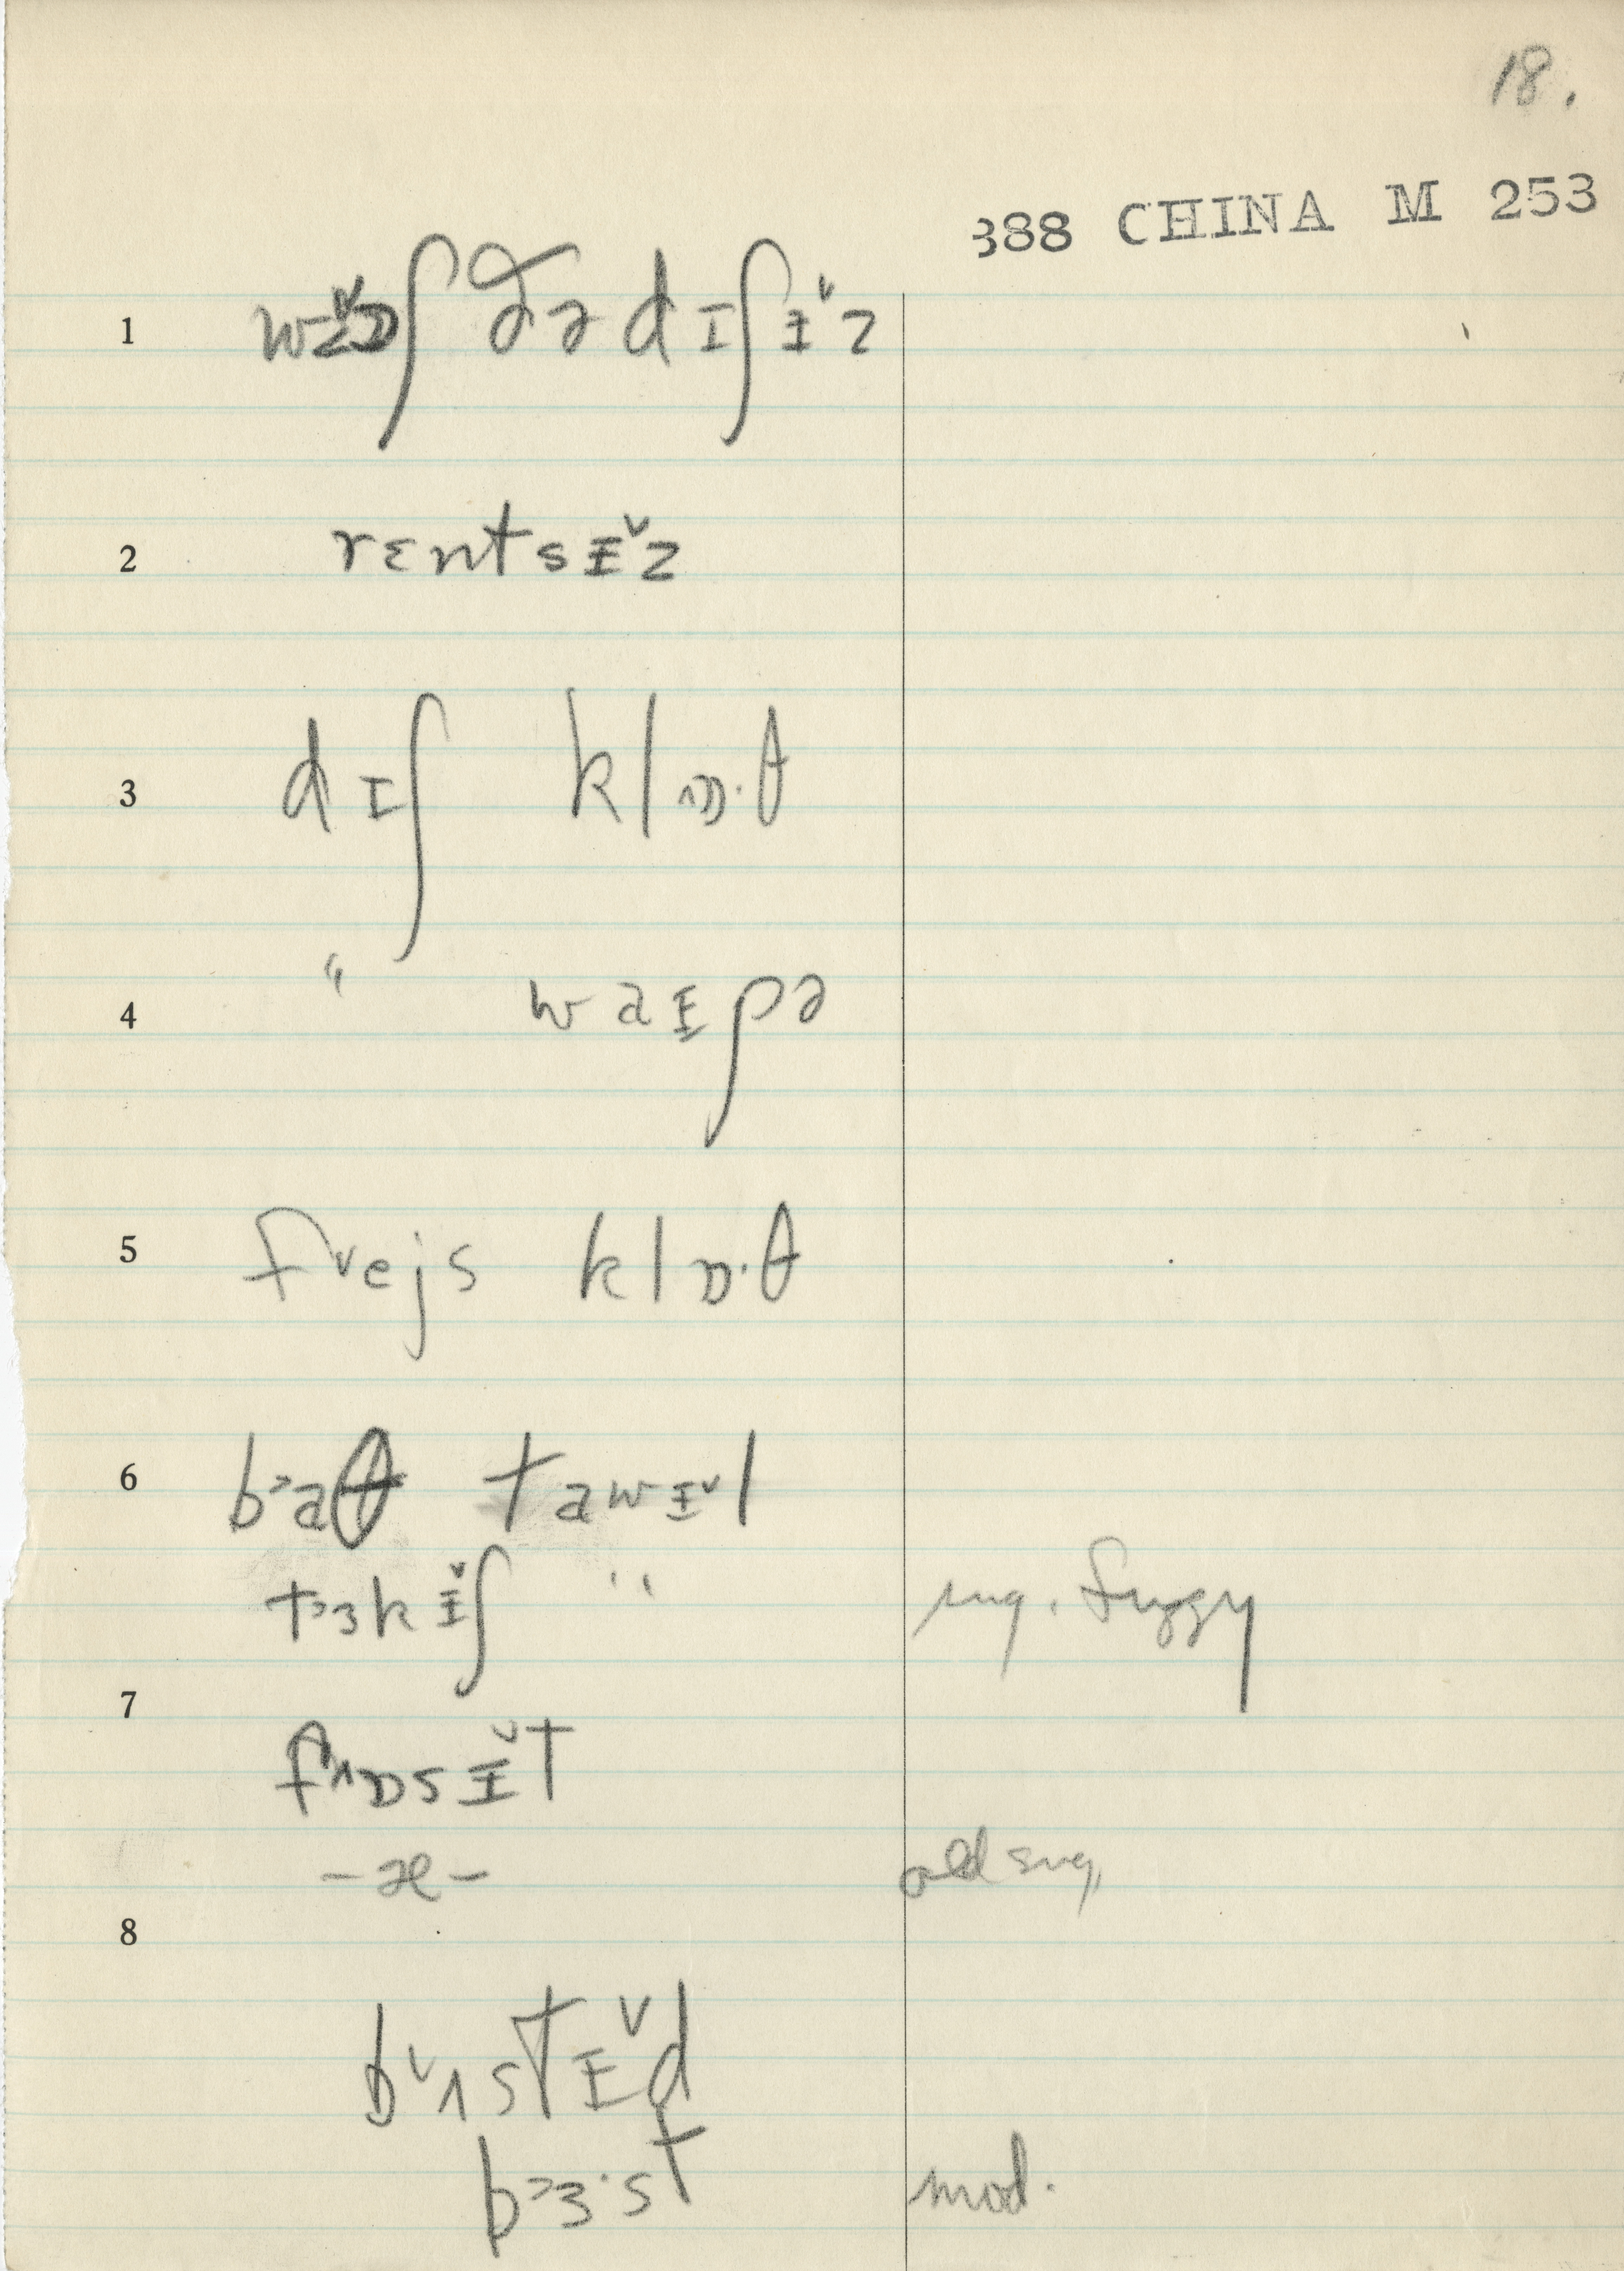 18.
388 CHINA M 253
1 wɒ˅ʃ ðə dɪʃɪ˅z
2 rɛntsɪ˅z
3 dɪʃ klɒ·θ
4 " waɪpə
5 f˅ejs klɒ·θ
6 b˃aθ tawɪ˅l
t˃ɜkɪ˅ʃ " sug. fuzzy
7 f˄ɒsɪ˅t
-æ- old sug.
8
b˅ʌstɪ˅d
b˃ɜ·st mod.